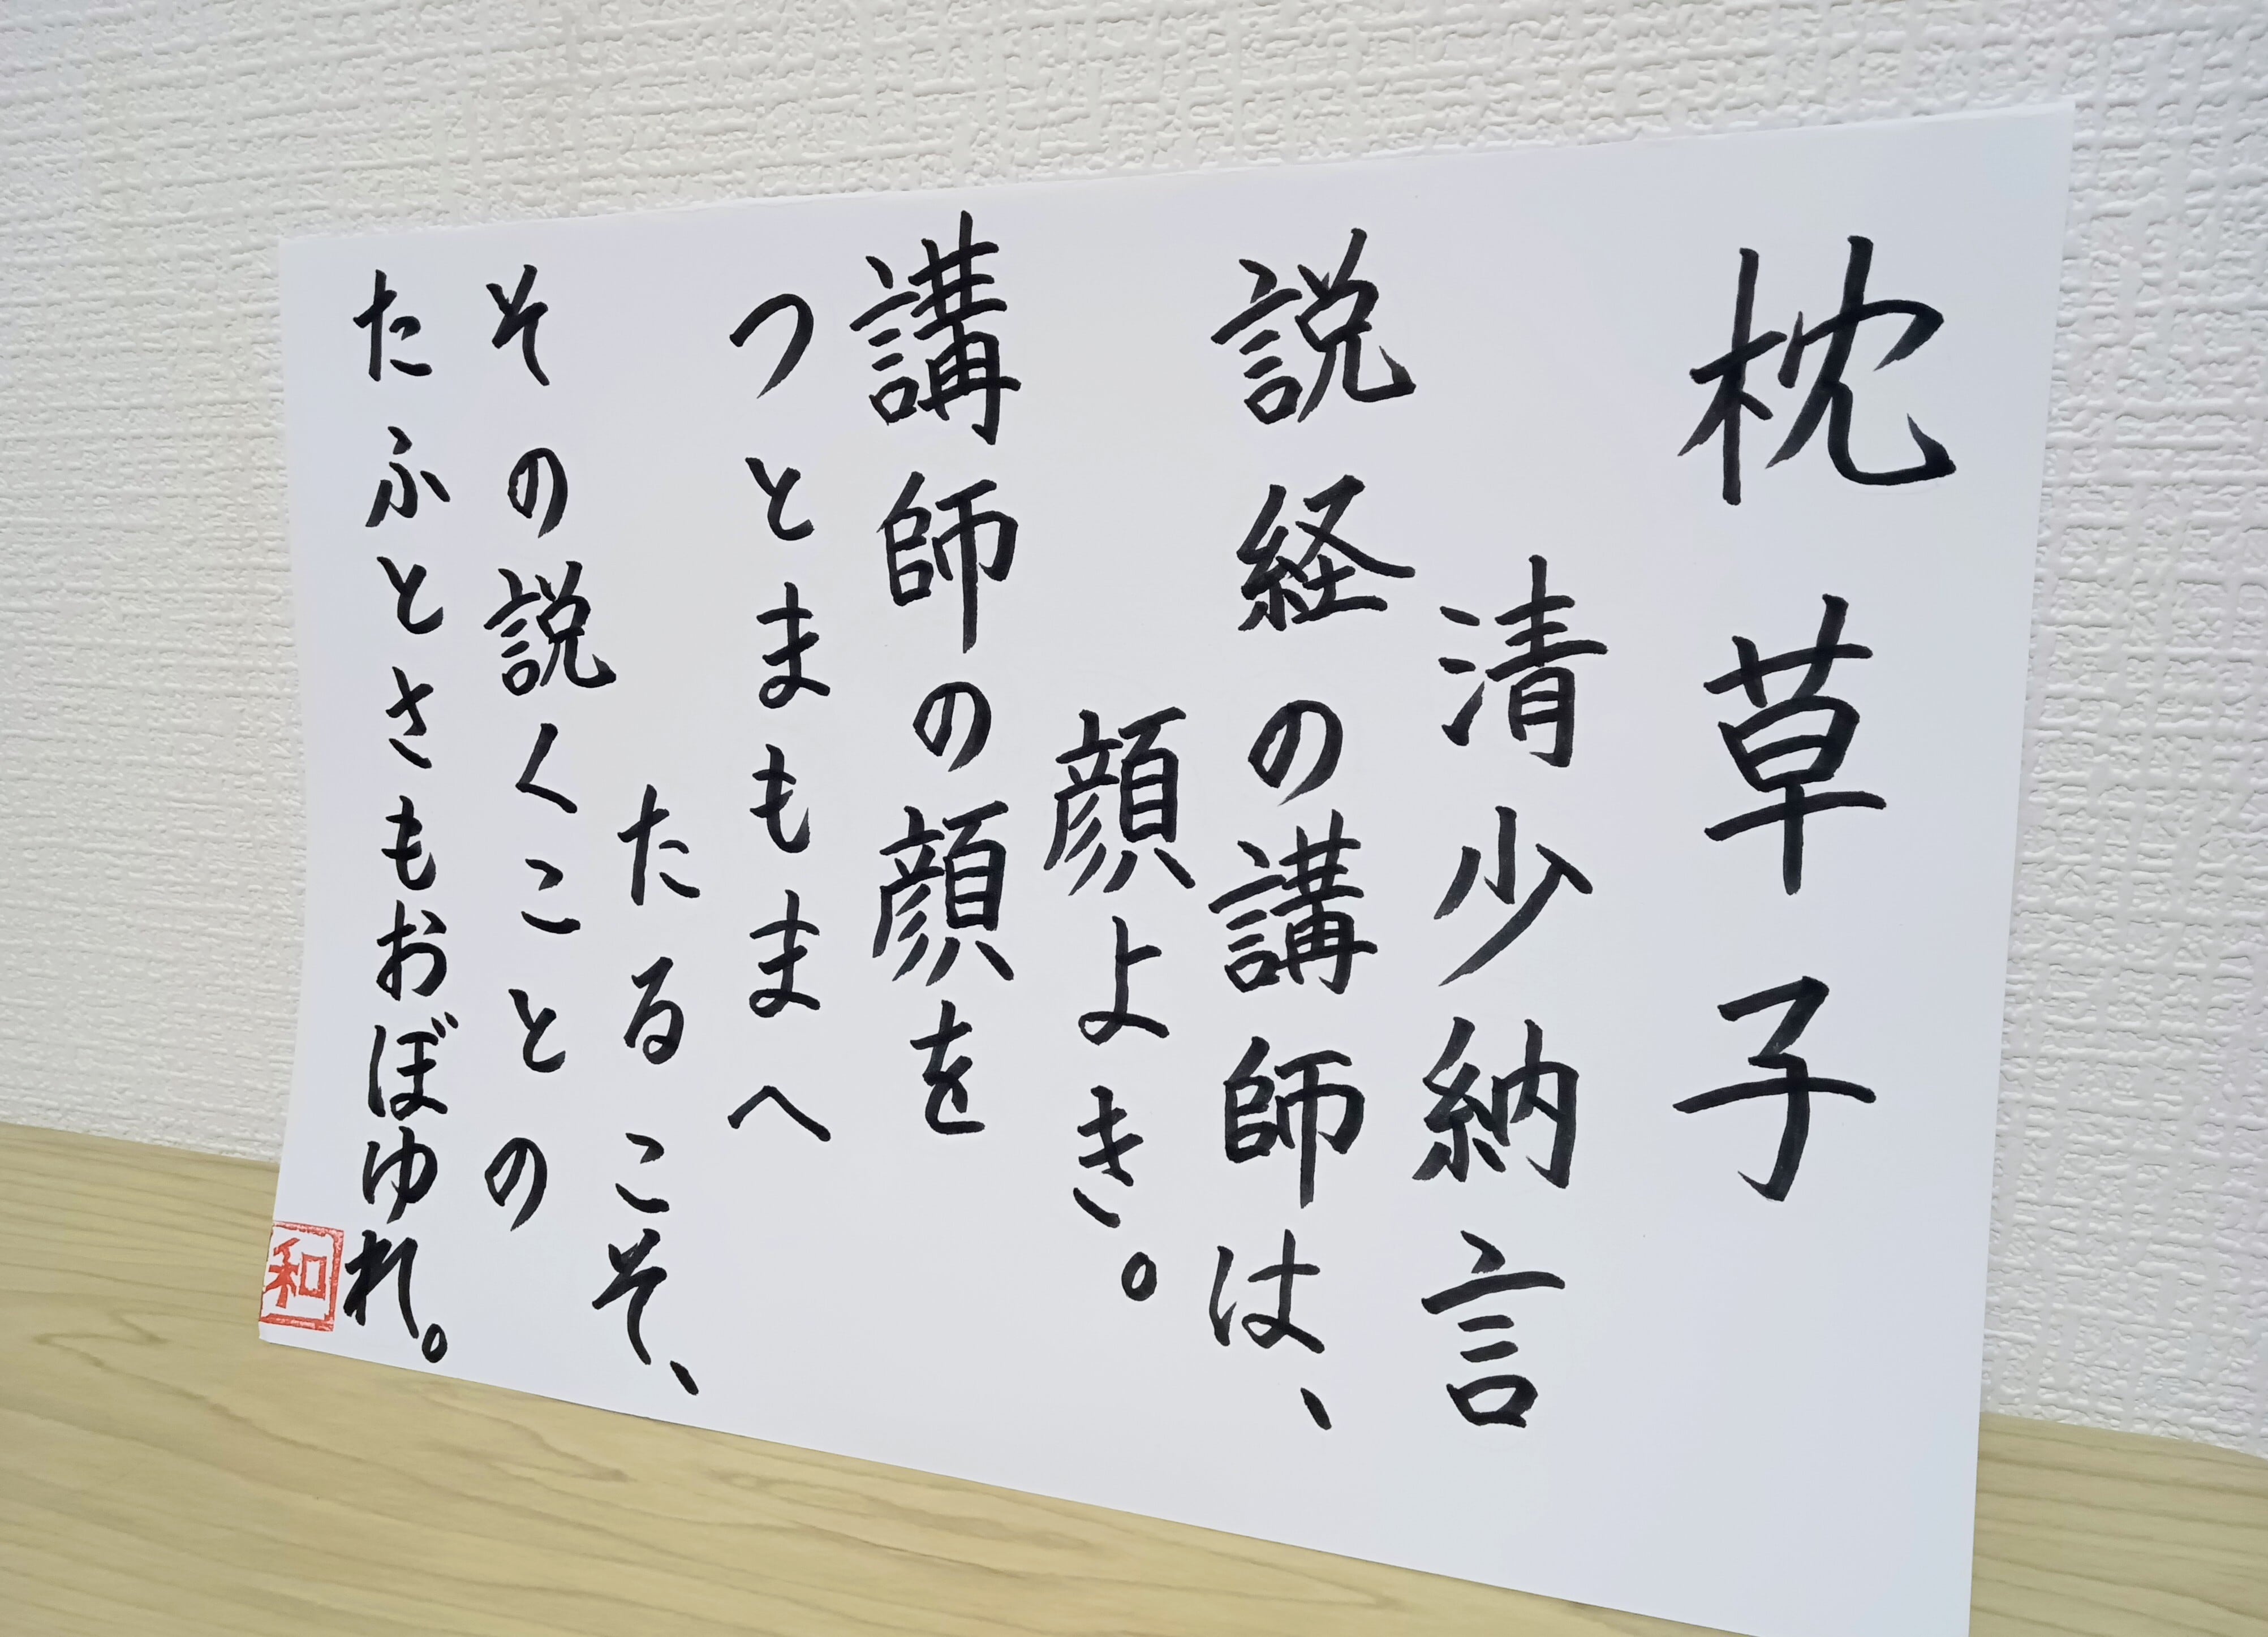 枕草子
清少納言
説経の講師は、
顔よき。
講師の顔を
つとまもまへ
たるこそ、
その説くことの
たふとさもおぼゆれ。
和